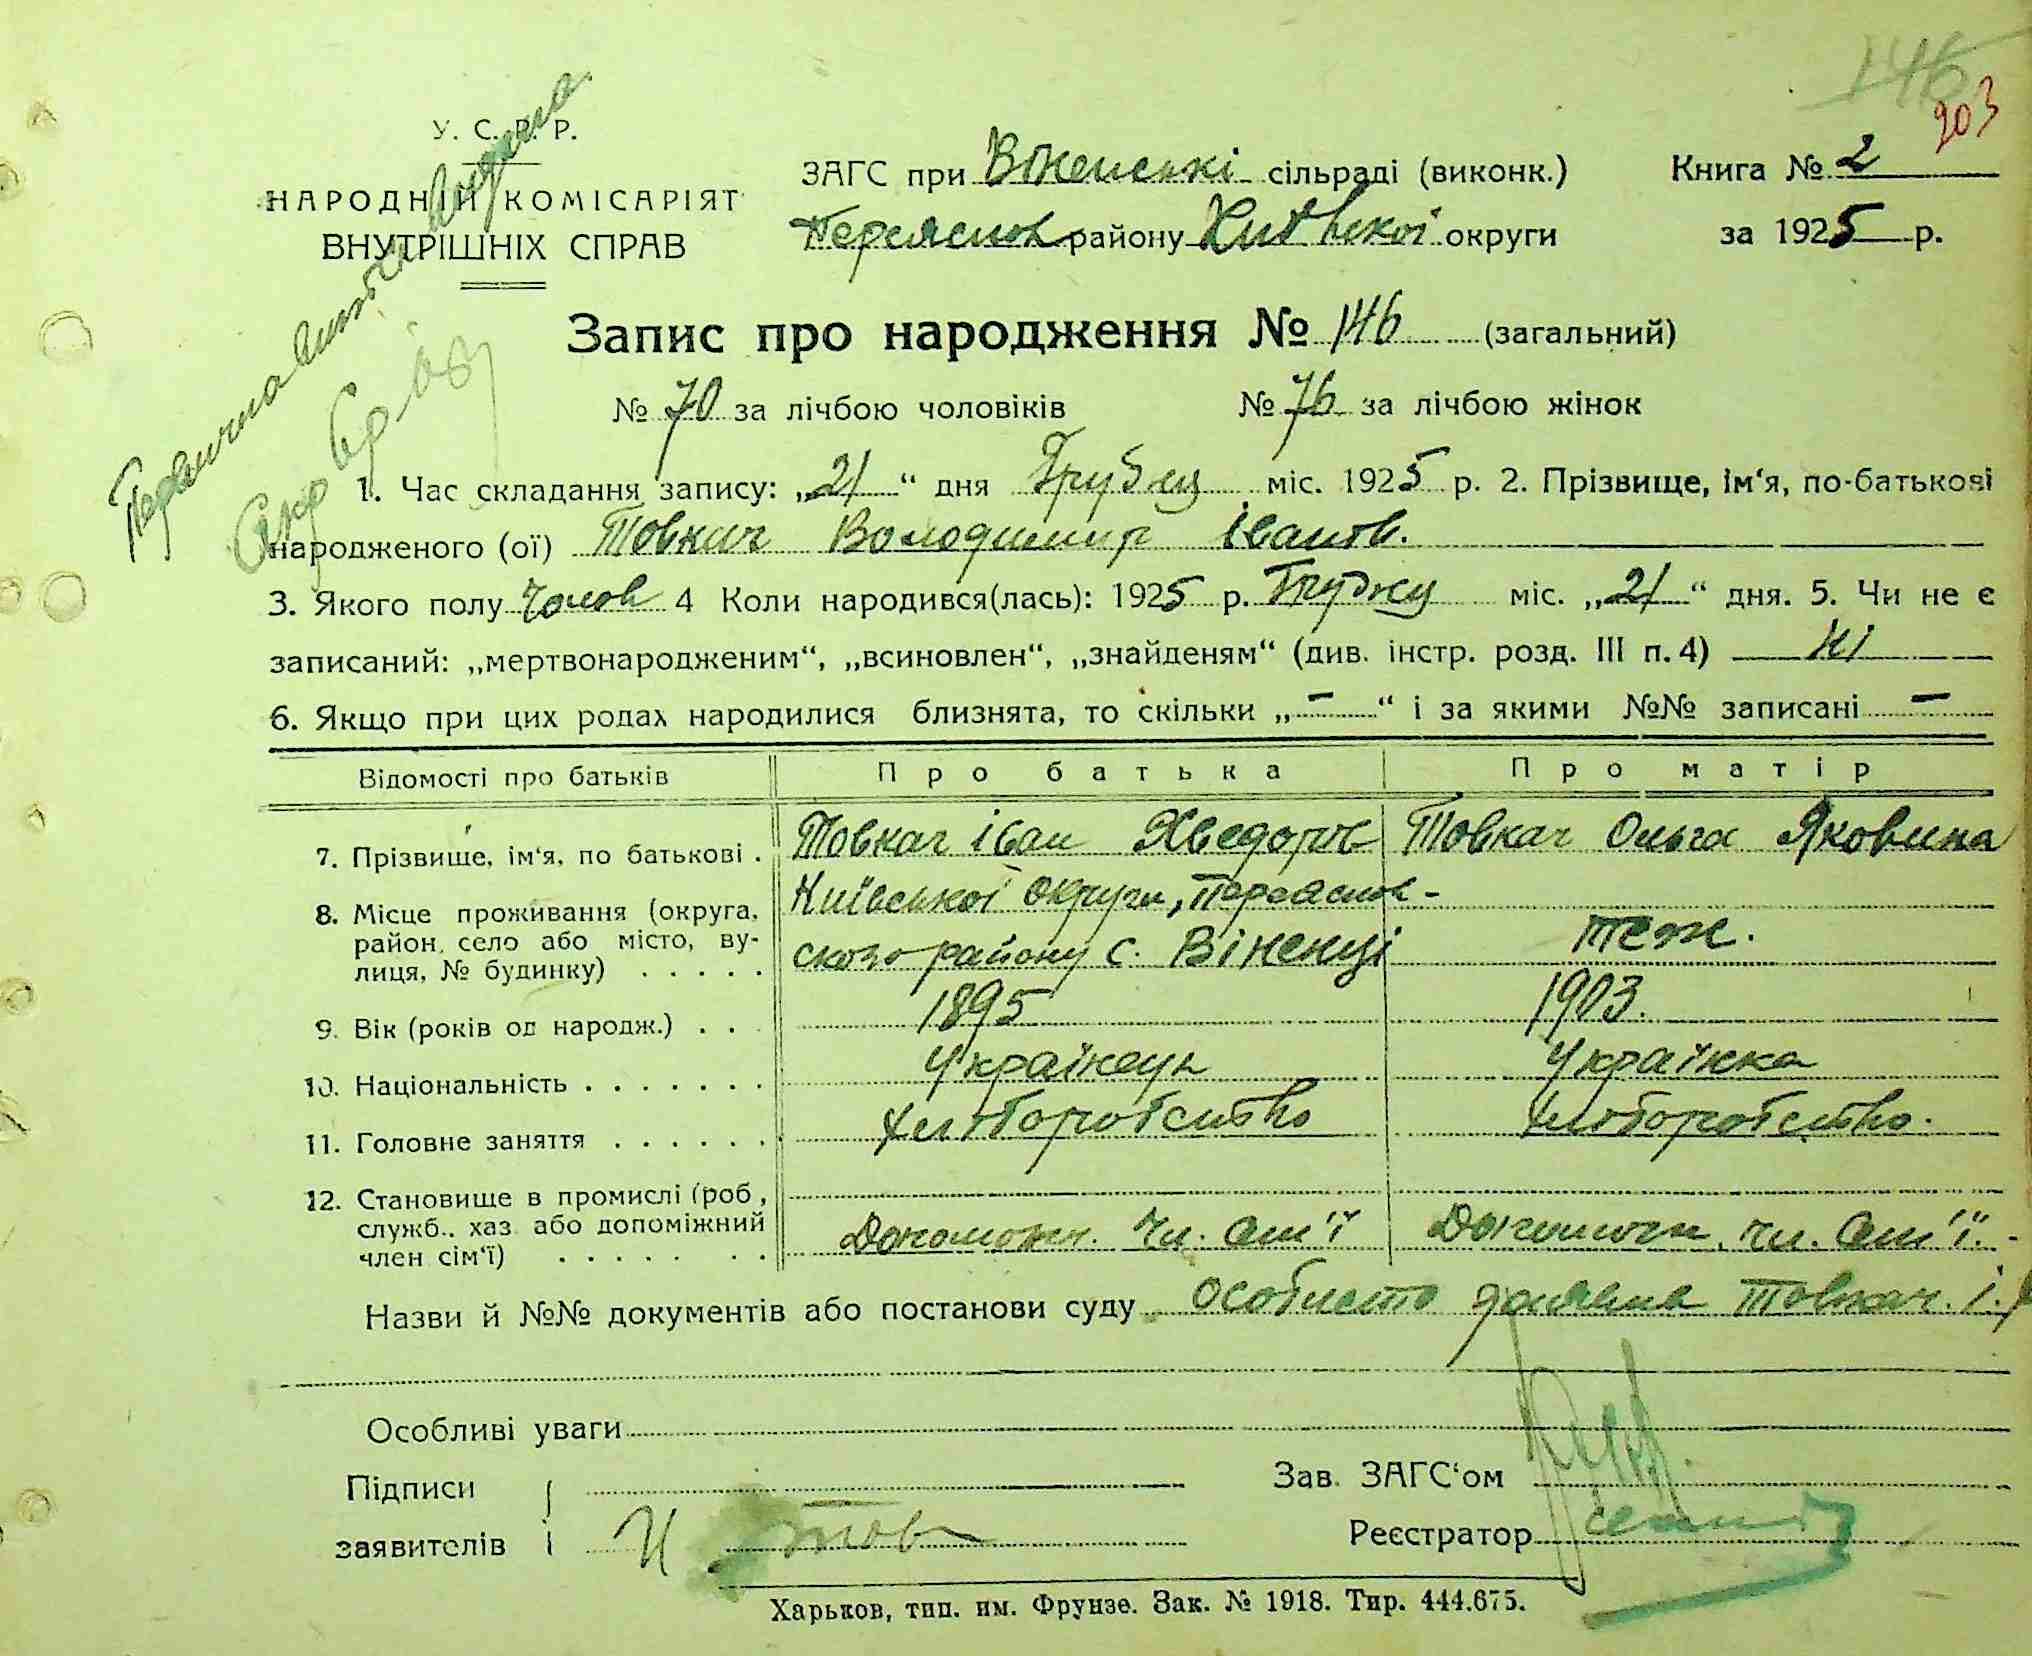 146
203
У. С. Р. Р.
НАРОДНІЙ КОМІСАРІЯТ
ВНУТРІШНІХ СПРАВ
ЗАГС при сільраді (виконк.)
Переяслов району Київської округи
Книга № 2
за 1925 р.
Запис про народження № 146 (загальний)
№ 70 за лічбою чоловіків № 76 за лічбою жінок
1. Час складання запису: „21“ дня міс. 1925 р. 2. Прізвище, ім‘я, по-батькові
народженого (ої) Товкач Володимир Іванов.
3. Якого полу Чолов 4 Коли народився(лась): 1925 р. Грудню міс. „21“ дня. 5. Чи не є
записаний: „мертвонародженим“, „всиновлен“, „знайденям“ (див. інстр. розд. III п. 4) Ні
6. Якщо при цих родах народилися близнята, то скільки „–“ і за якими №№ записані –
Відомості про батьків Про батька Про матір
7. Прізвище, ім‘я, по батькові . Товкач Іван Хведоров Товкач Ольга Яковина
8. Місце проживання (округа, Київської округи, Переяслов-
район, село або місто, ву- ського району с. Віненці теж.
лиця, № будинку) . . . . .
9. Вік (років од народж.) . . . 1895 1903.
10. Національність . . . . . . . Українець Українка
11. Головне заняття . . . . . . Хліборобство Хліборобство.
12. Становище в промислі (роб.,
служб., хаз. або допоміжний Допоможн. чл. сем'ї Допоможн. чл. сем'ї.
член сім‘ї) . . . . . . .
Назви й №№ документів або постанови суду Особисто Товкач. І.
Особливі уваги
Підписи
заявителів И Тов
Зав. ЗАГС‘ом
Реєстратор
Харьков, тип. им. Фрунзе. Зак. № 1918. Тир. 444.675.